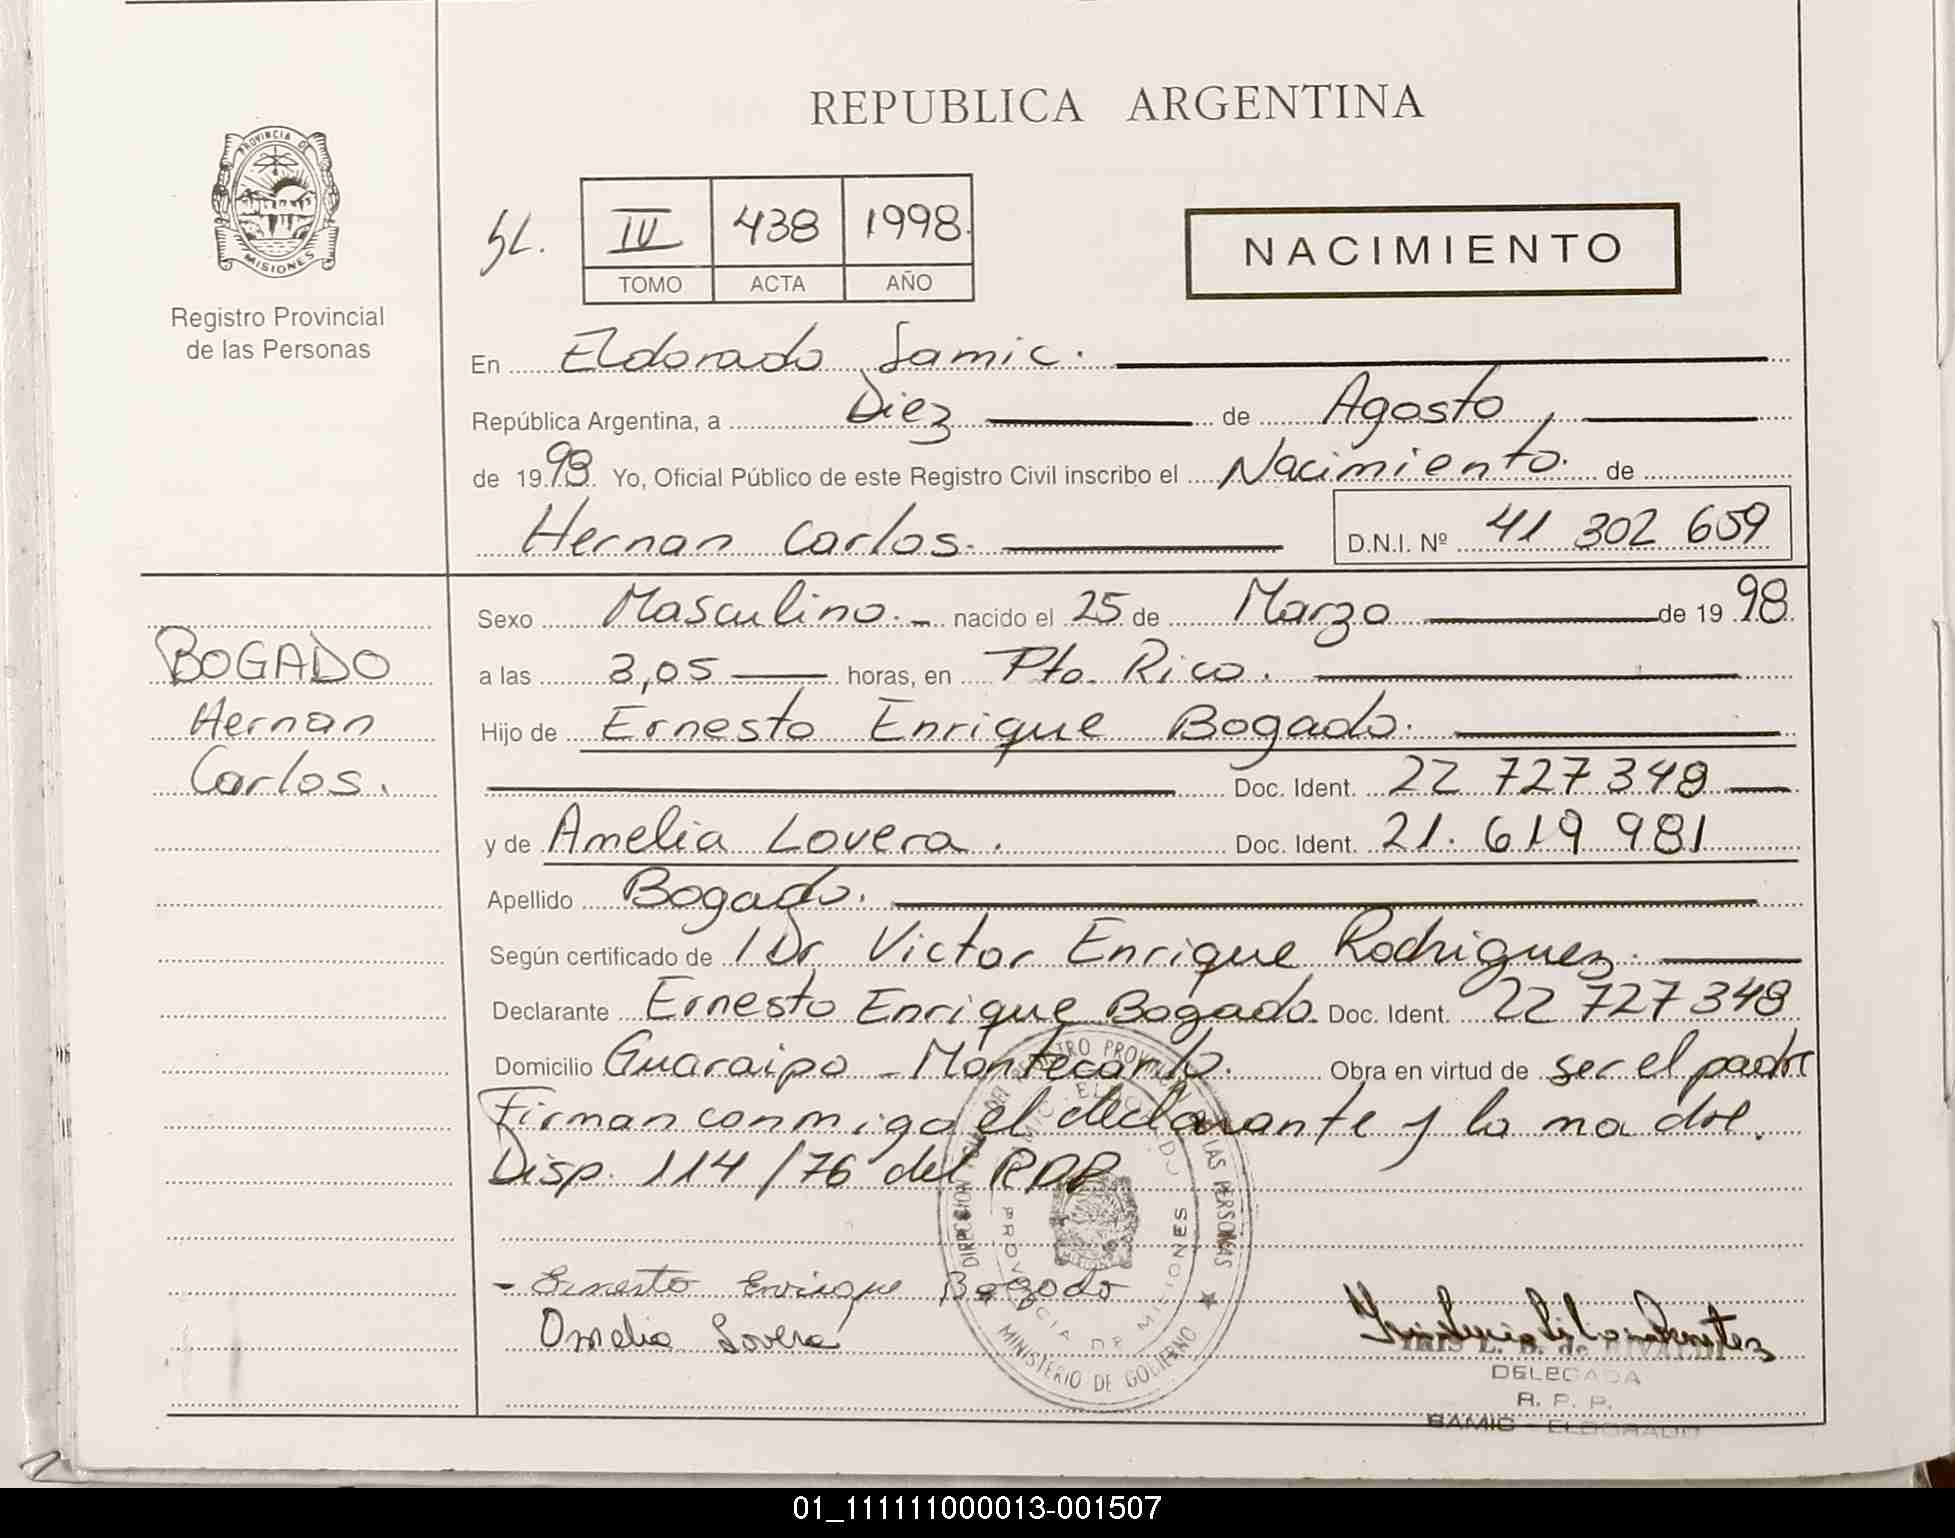 REPUBLICA ARGENTINA
PROVINCIA DE
MISIONES
Registro Provincial
de las Personas
IV 438 1998.
TOMO ACTA AÑO
NACIMIENTO
En Eldorado Samic.
República Argentina, a Diez de Agosto
de 1998. Yo, Oficial Público de este Registro Civil inscribo el Nacimiento. de
Hernan Carlos. D.N.I. Nº 41 302 659
BOGADO
Hernan
Carlos.
Sexo Masculino. nacido el 25 de Marzo de 1998.
a las 3,05 horas, en Pto. Rico.
Hijo de Ernesto Enrique Bogado.
Doc. Ident. 22 727 348
y de Amelia Lovera. Doc. Ident. 21. 619 981
Apellido Bogado.
Según certificado de Dr Victor Enrique Rodriguez.
Declarante Ernesto Enrique Bogado. Doc. Ident. 22 727 348
Domicilio Guaraipo - Montecarlo. Obra en virtud de ser el padre
Firman conmigo el declarante y la madre.
Disp. 114/76 del RPP
- Ernesto Enrique Bogado
Omelia Lovera
PROVINCIA DE MISIONES
MINISTERIO DE GOBIERNO
DELEGADA
R. P. P.
SAMIC - ELDORADO
01_111111000013-001507